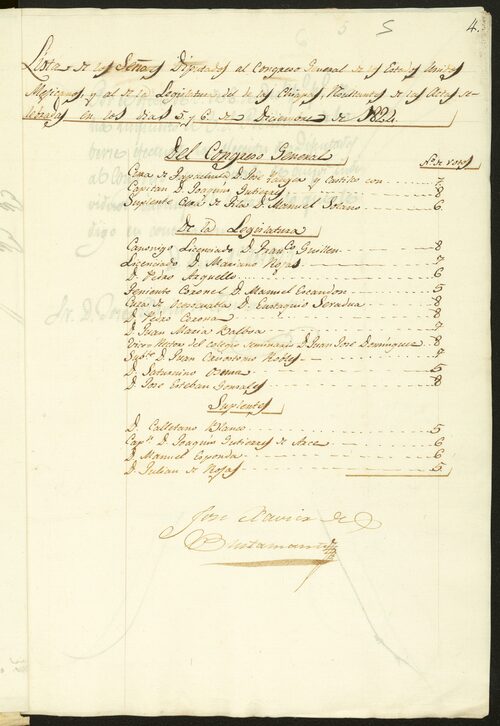 4.
Lista de los Señores Diputados al Congreso General de los Estados Unidos
Mejicanos y al de la Legislatura del de las Chiapas, Resultantes de las Actas ce-
lebradas en los dias 5, y 6 de Diciembre de 1824.
Del Congreso General
No. de votos
Cura de D. José Vargas y Castillo con 7
Capitan D. Joaquin Gutierrez 8
Suplente Cura de D. Manuel Solano 6
De la Legislatura
Canonigo Licenciado D. Franco. Guillen 8
Licenciado D. Mariano Rojas 7
D. Pedro Arguello 6
Teniente Coronel D. Manuel Escandon 5
Cura de D. Eustaquio 8
D. Pedro Corona 8
D. Juan Maria Balboa 7
Vice-Rector del colegio Seminario D. Juan José Dominguez 8
D. Juan Crisostomo Robles 7
D. Saturnino 5
D. José Esteban Gonzales 8
Suplentes
D. Calletano Blanco 5
Capn. D. Joaquin Gutierres de Arce 6
D. Manuel Esponda 6
D. Julian de Rojas 5
José Xavier de
Bustamante